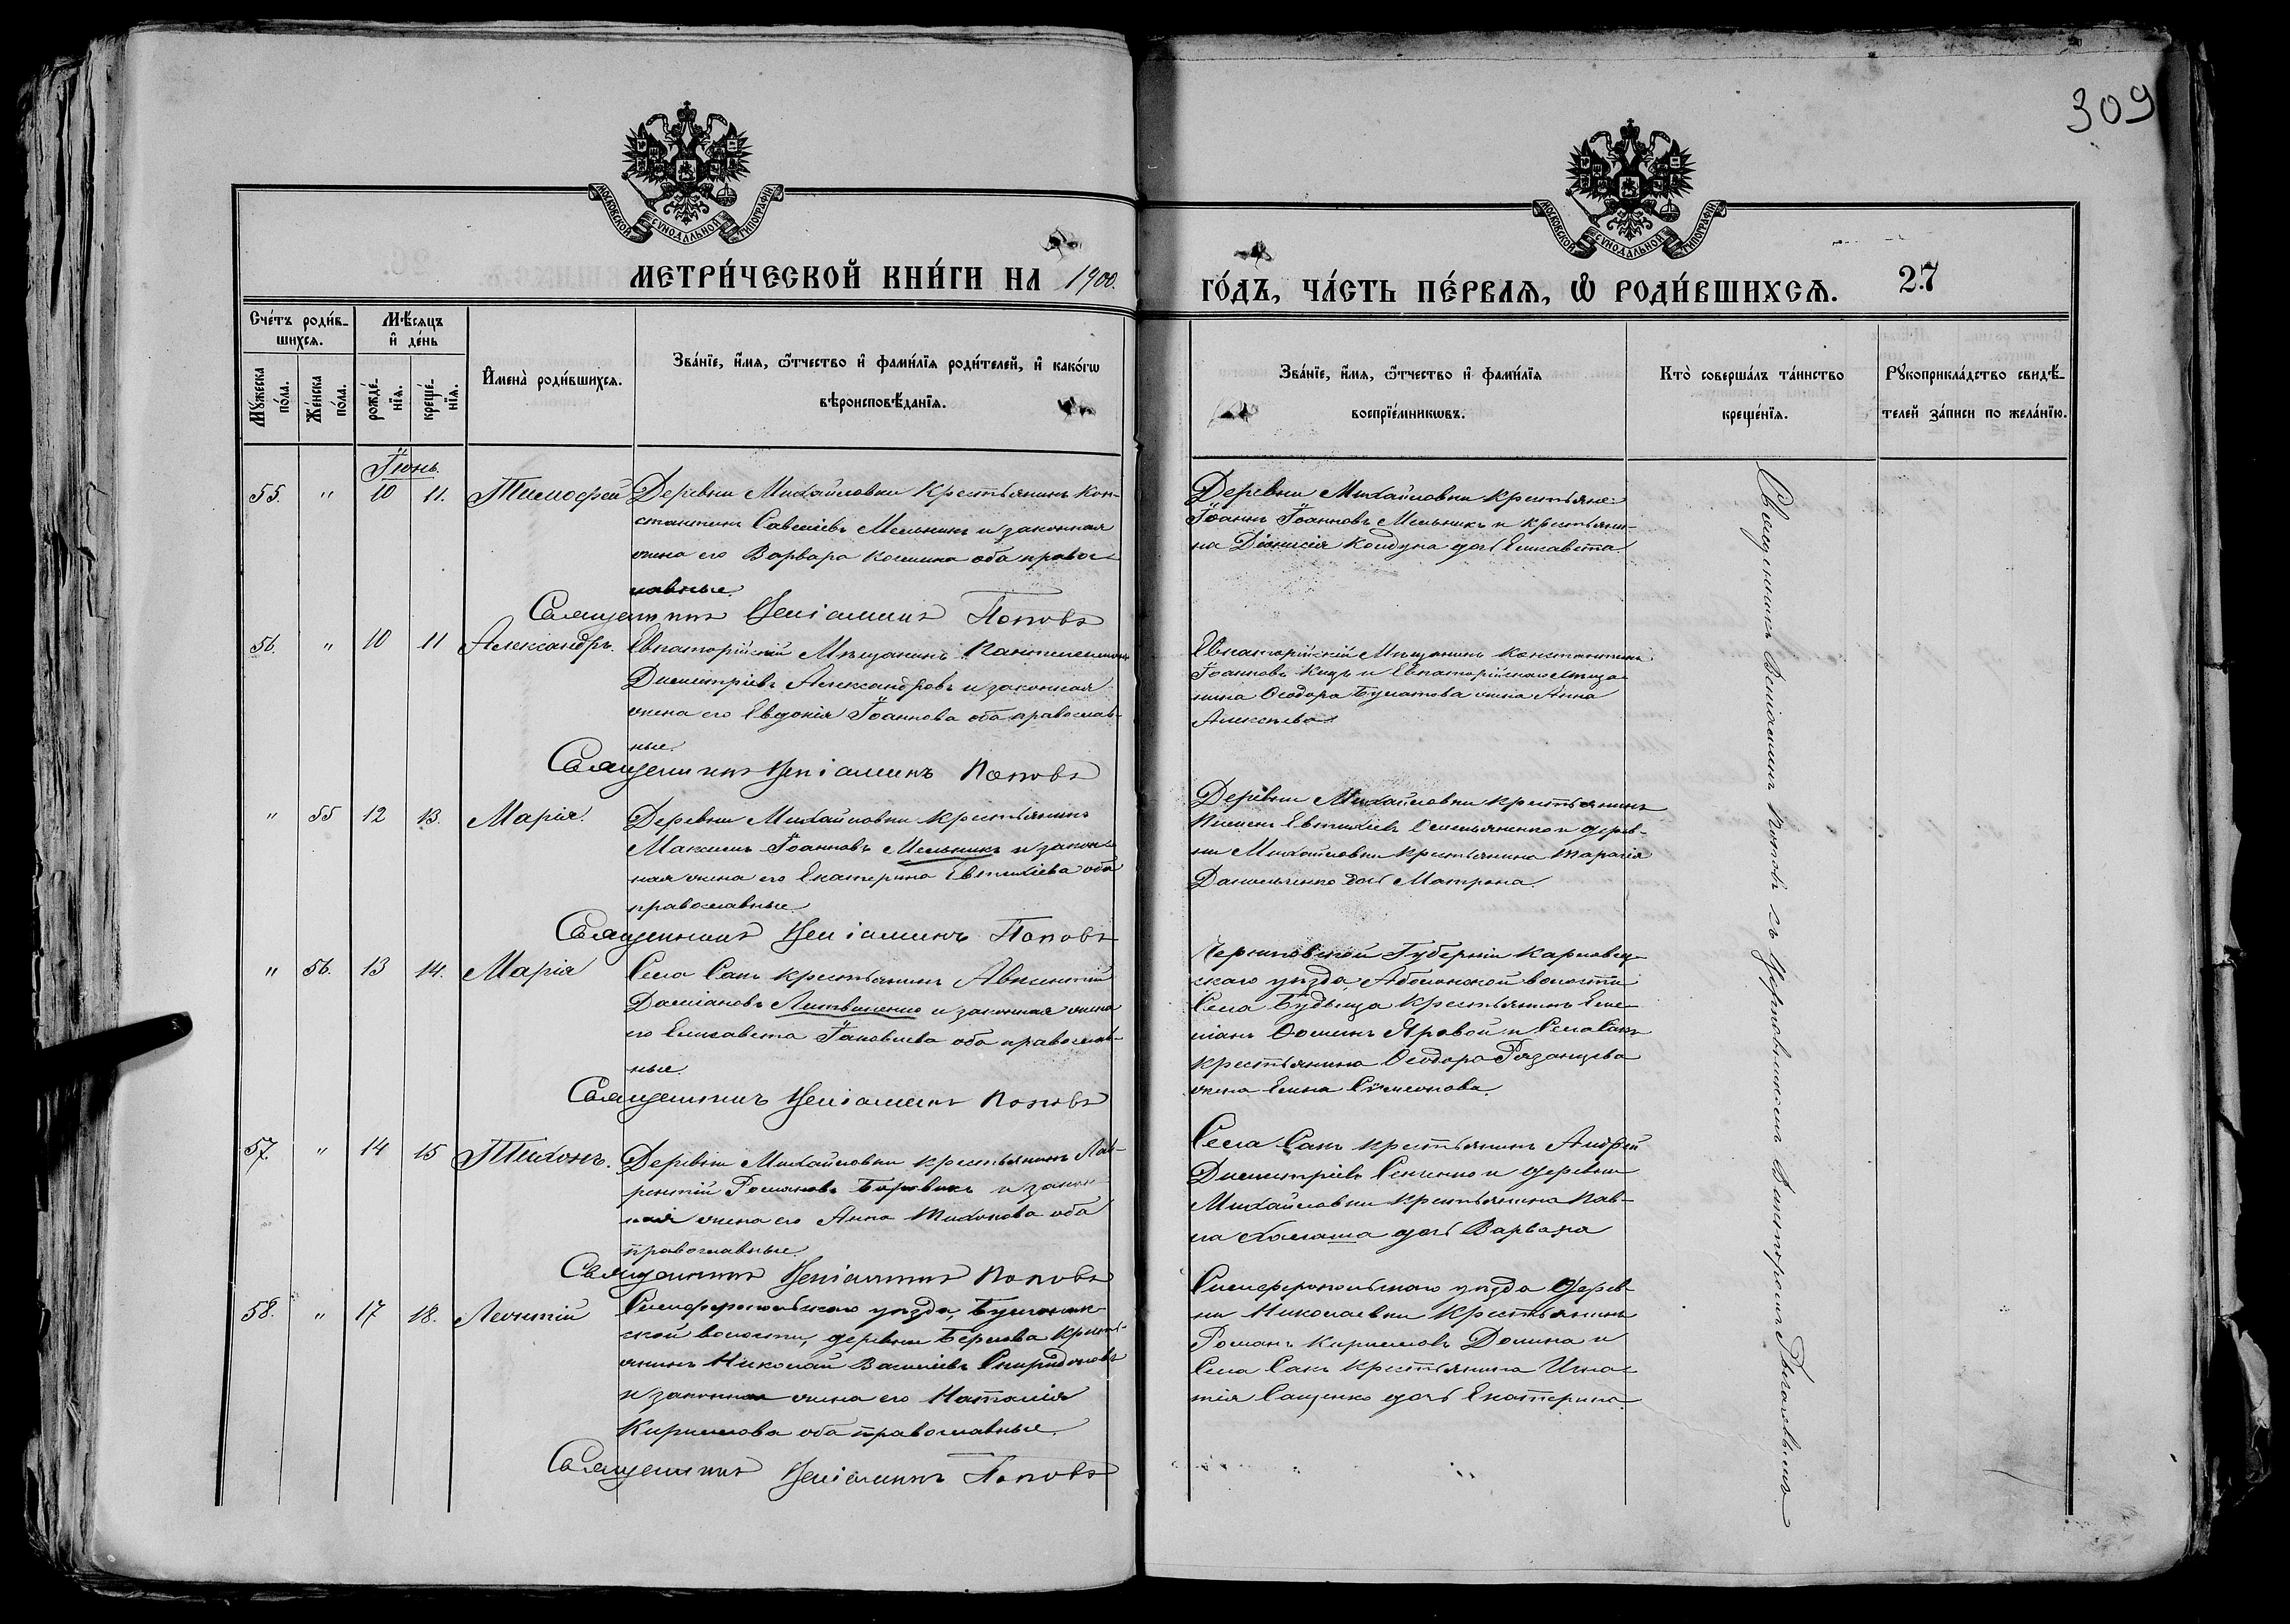 309
МОСКОВСКОЙ СѴНОДАЛЬНОЙ ТИПОГРАФІИ
МОСКОВСКОЙ СѴНОДАЛЬНОЙ ТИПОГРАФІИ
МЕТРИ́ЧЕСКОЙ КНИ́ГИ НА 1900.
ГО́ДЪ, ЧА́СТЬ ПЕ́РВАѦ, Ѡ҆ РОДИ́ВШИХСѦ. 27
Сче́тъ роди́в-
шихсѧ.
Мꙋ́жеска по́ла.
Же́нска по́ла.
Мѣ́сѧцъ
и҆ де́нь
рожде́-
нїѧ.
креще́-
нїѧ.
И҆мена̀ роди́вшихсѧ.
Зва́нїе, и҆́мѧ, ѻ҆́тчество и҆ фами́лїѧ роди́телей, и҆ како́гѡ
вѣроисповѣ́данїѧ.
Зва́нїе, и҆́мѧ, ѻ҆́тчество и҆ фами́лїѧ
воспрїе́мникѡвъ.
Кто̀ соверша́лъ та́инство
креще́нїѧ.
Рꙋкоприкла́дство свидѣ́-
телей за́писи по жела́нїю.
Іюнь.
55. " 10 11. Тимофей Деревни Михайловки крестьянинъ Кон-
стантинъ Савеліевъ Мельникъ и законная
жена его Варвара Козмина оба правос-
лавные.
Священникъ Веніаминъ Поповъ
Деревни Михайловки крестьяне:
Іоаннъ Іоанновъ Мельникъ и крестьяни-
на Діонисія Колдуна дочь Елисавета
56. " 10 11 Александръ. Евпаторійскій Мѣщанинъ Пантелеимонъ
Димитріевъ Александровъ и законная
жена его Евдокія Іоаннова оба православ-
ные.
Священникъ Веніаминъ Поповъ
Евпаторійскій Мѣщанинъ Константинъ
Іоанновъ и Евпаторійскаго мѣща-
нина Ѳеодора Булатова жена Анна
Алексѣева
" 55 12 13. Марія. Деревни Михайловки крестьянинъ
Максимъ Іоанновъ Мельникъ и закон-
ная жена его Екатерина Евтихіева оба
православные.
Священникъ Веніаминъ Поповъ
Деревни Михайловки крестьянинъ
Пименъ Евтихіевъ Емельяненко и дерев-
ни Михайловки крестьянина Тарасія
Данильченко дочь Матрона.
" 56. 13 14. Марія Села Сакъ крестьянинъ Авксентій
Даміановъ Литвиненко и законная жена
его Елисавета Іаковлева оба православ-
ные.
Священникъ Веніаминъ Поповъ
Черниговской Губерніи
скаго уѣзда, волости
Села Будьща крестьянинъ Еме-
ліанъ Ѳоминъ Яровой и Села Сакъ
крестьянина Ѳеодора Рязанцева
жена Елена Сѵмеонова.
57. " 14 15 Тихонъ. Деревни Михайловки крестьянинъ Лав-
рентій Романовъ Боровикъ и закон-
ная жена его Анна Тихонова оба
православные.
Священникъ Веніаминъ Поповъ
Села Сакъ крестьянинъ Андрей
Димитріевъ Сенченко и деревни
Михайловки крестьянина Пав-
ла дочь Варвара
58. " 17 18. Леонтій Симферопольскаго уѣзда,
ской волости, деревни кресть-
янинъ Николай Василіевъ Спиридоновъ
и законная жена его Наталія
Кириллова оба православные.
Священникъ Веніаминъ Поповъ
Симферопольскаго уѣзда дерев-
ни Николаевки крестьянинъ
Романъ Кирилловъ Долина и
Села Сакъ крестьянина Игна-
тія Сащенко дочь Екатерина.
Священникъ Веніаминъ Поповъ съ церковникомъ Викторомъ